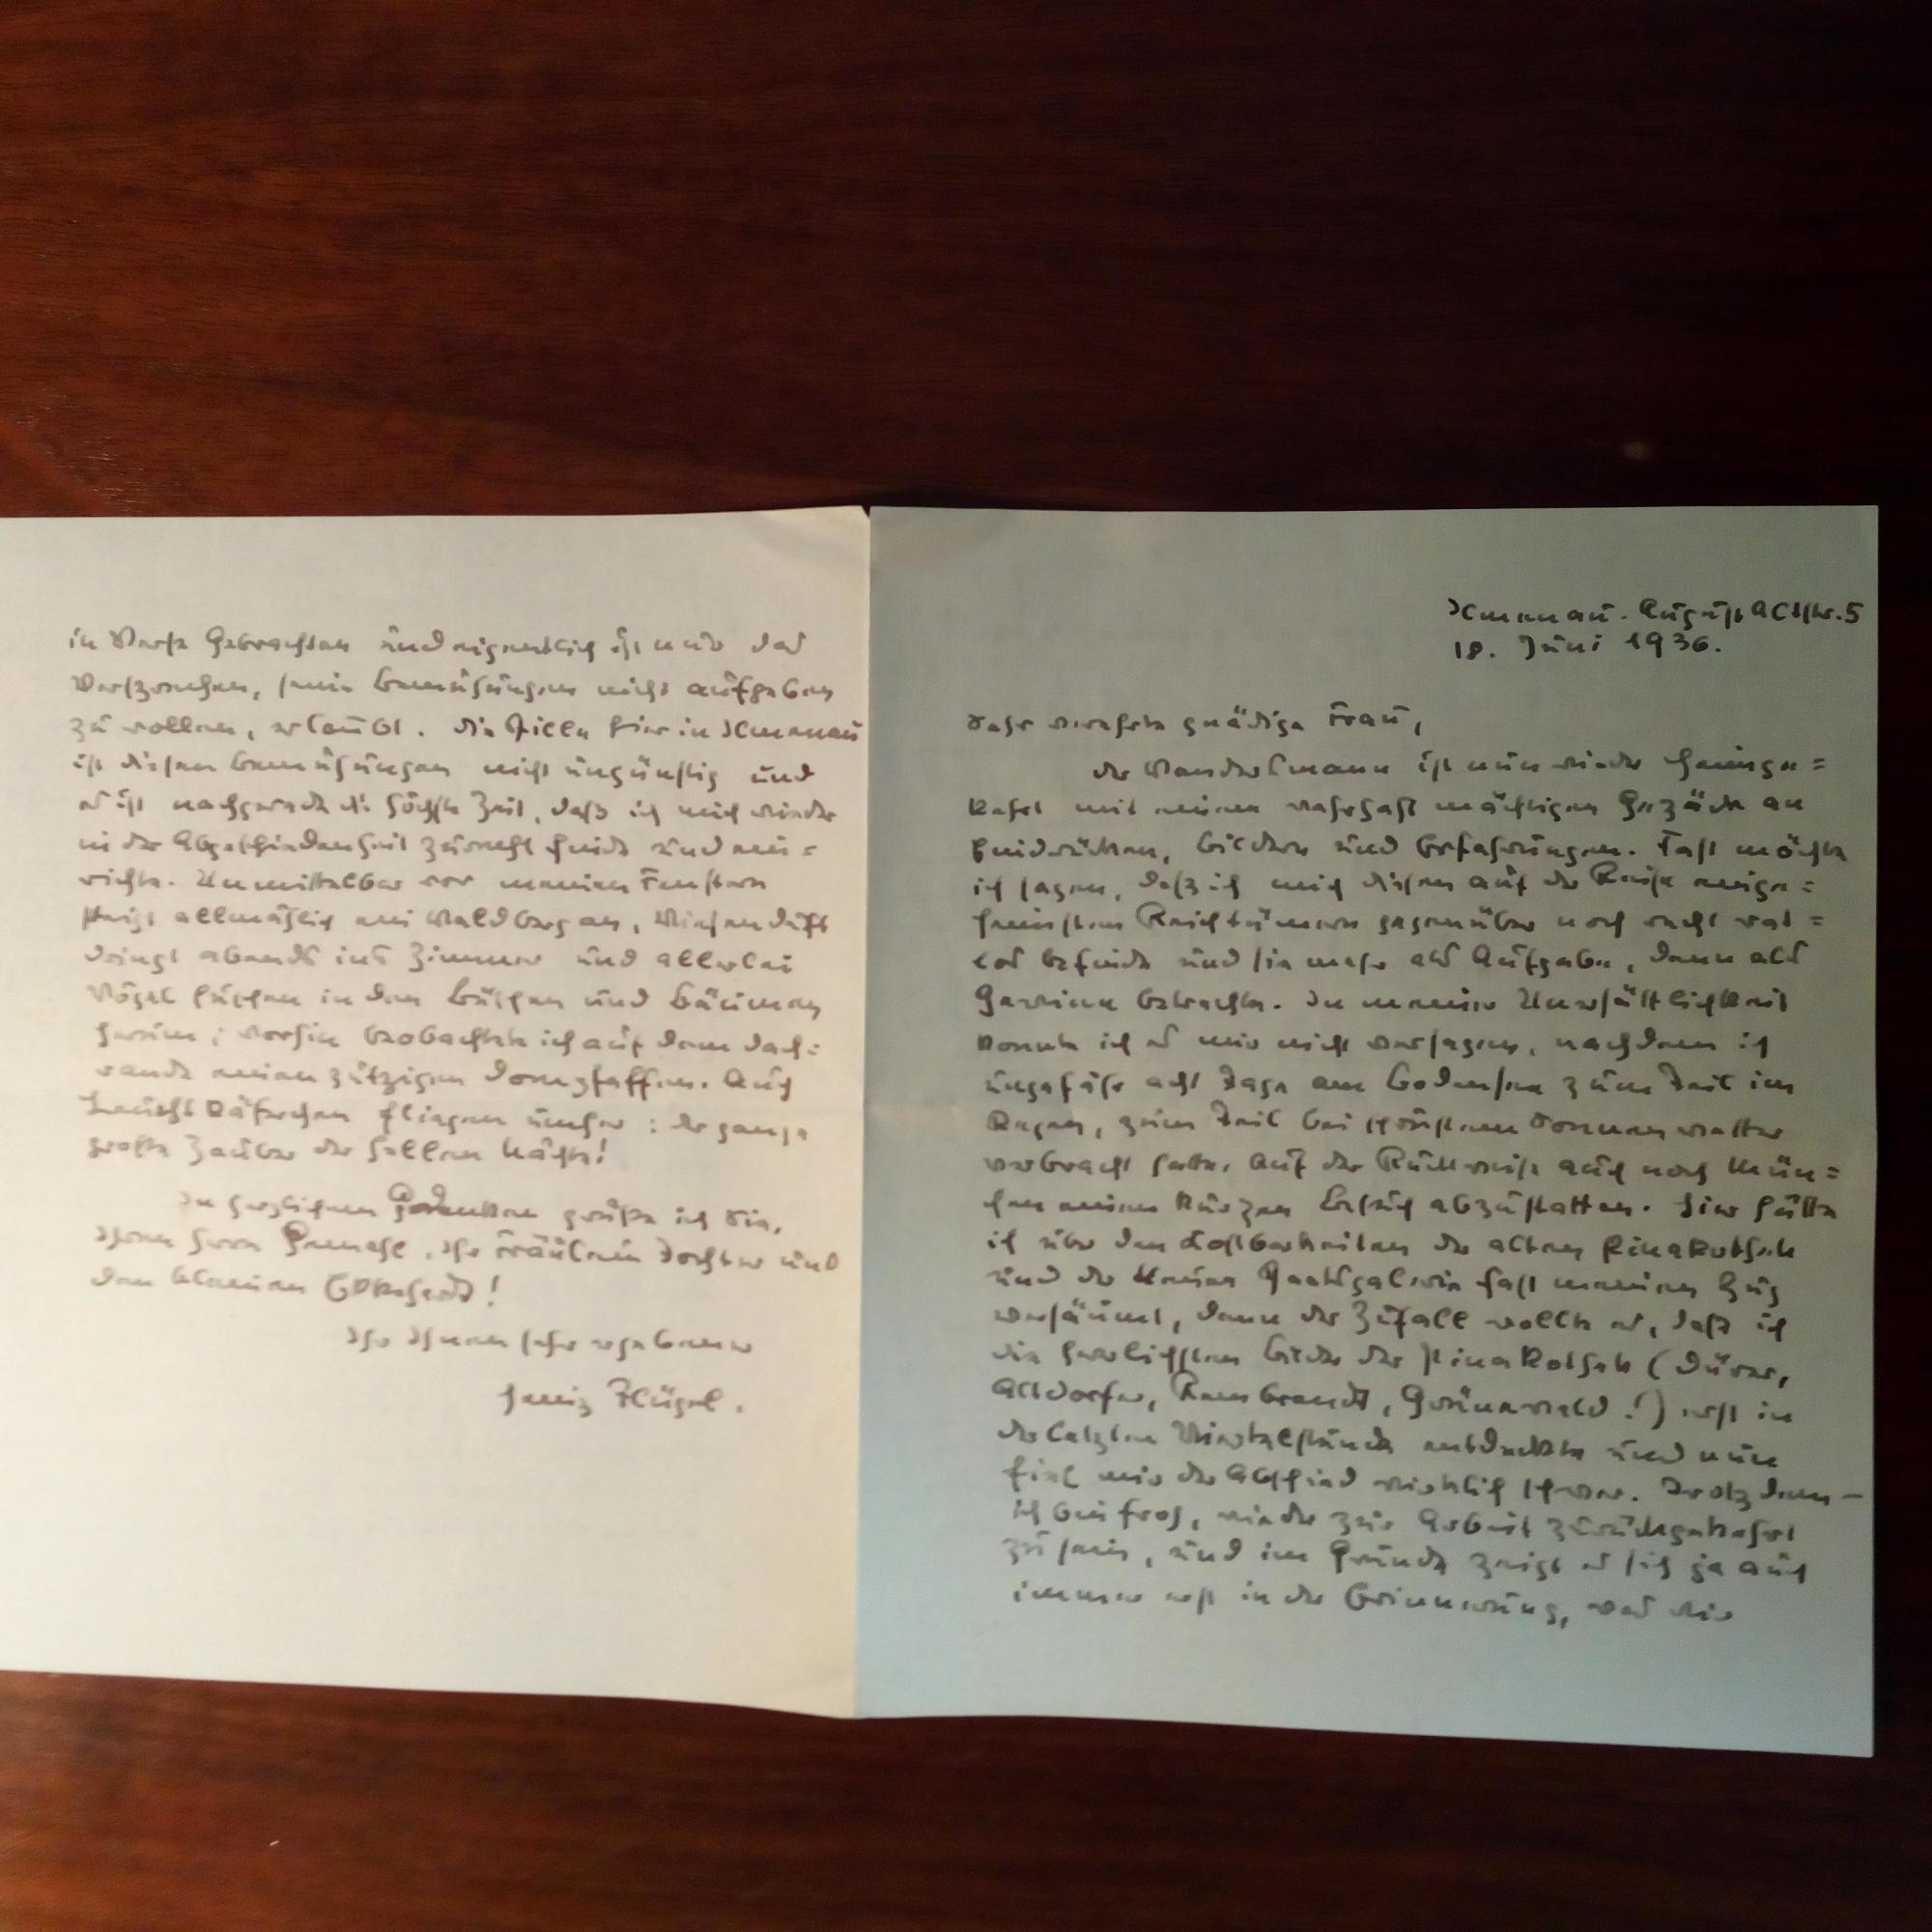 Ilmenau. Auguststr. 5
18. Juni 1936.
Sehr verehrte gnädige Frau,
der Wandersmann ist nun wieder heimge=
kehrt mit einem wahrhaft mächtigen Gepäck an
Eindrücken, Bildern und Erfahrungen. Fast möchte
ich sagen, daß ich mich diesen auf der Reise einge=
heimsten Reichtümern gegenüber noch recht rat=
los befinde und sie mehr als Aufgabe, denn als
Gewinn betrachte. In meiner Unersättlichkeit
konnte ich es mir nicht versagen, nachdem ich
ungefähr acht Tage am Bodensee zum Teil im
Regen, zum Teil bei schönstem Sonnenwetter
verbracht hatte, auf der Rückreise auch noch Mün=
chen einen kurzen Besuch abzustatten. Hier hätte
ich über den Kostbarkeiten der alten Pinakothek
und der neuen Staatsgalerie fast meinen Zug
versäumt, denn der Zufall wollte es, daß ich
die herrlichsten Bilder der Pinakothek (Dürer,
Altdorfer, Rembrandt, Grünewald!) erst in
der letzten Viertelstunde entdeckte und nun
fiel mir der Abschied wirklich schwer. Trotzdem –
ich bin froh, wieder zur Arbeit zurückgekehrt
zu sein, und im Grunde zeigt es sich ja auch
immer erst in der Erinnerung, was wir
in Verse Gebrachten und eigentlich ist nur das
Versprechen, seine Bemühungen nicht aufgeben
zu wollen, erlaubt. Die Stille hier in Ilmenau
ist diesen Bemühungen nicht ungünstig und
es ist nachgerade die höchste Zeit, daß ich mich wieder
in der Abgeschiedenheit zurecht finde und ein=
richte. Unmittelbar vor meinen Fenstern
steigt allmählich ein Waldberg an, Wiesenduft
dringt abends ins Zimmer und allerlei
Vögel huschen in den Büschen und Bäumen
herum; vorhin beobachtete ich auf dem Dach=
rande einen putzigen Dompfaffen. Auch
Leuchtkäferchen fliegen umher: der ganze
große Zauber der hellen Nächte!
In herzlichem Gedenken grüße ich Sie,
Ihren Herrn Gemahl, Ihr Fräulein Tochter und
den kleinen Ekkehard!
Ihr Ihnen sehr ergebener
Heinz Flügel.